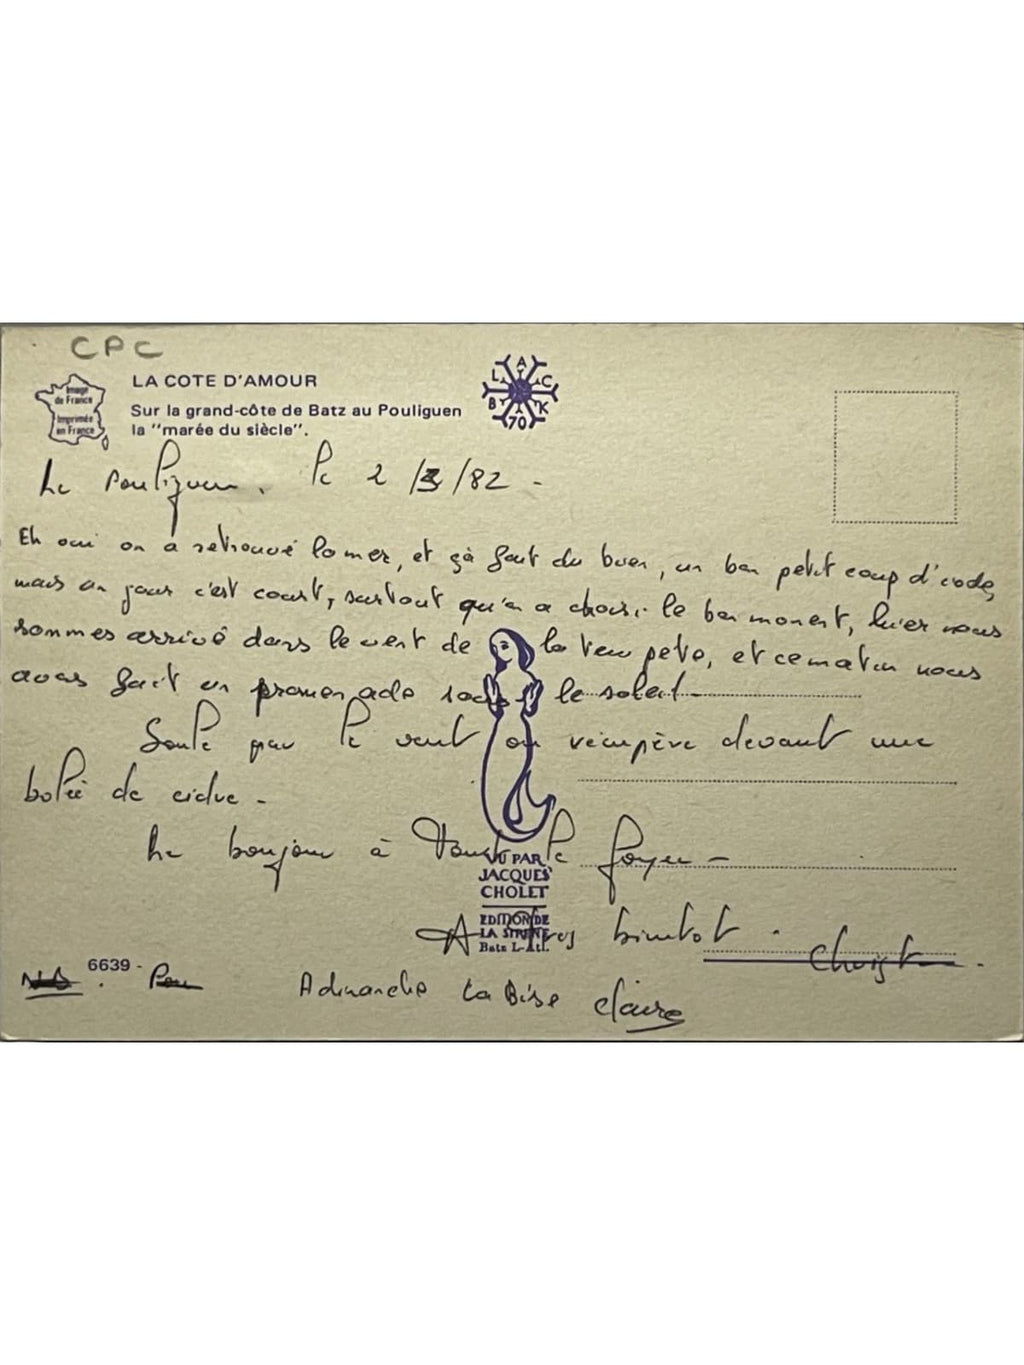 CPC
Image
de France
Imprimée
en France
LA COTE D'AMOUR
Sur la grand-côte de Batz au Pouliguen
la "marée du siècle".
BLACK
70
Le Pouliguen. le 2/3/82 -
Eh oui on a retrouvé la mer, et çà fait du bien, un bon petit coup d'iode,
mais un jour c'est court, surtout qu'on a choisi le bon moment, hier nous
sommes arrivé dans le vent de la tempete, et ce matin nous
avons fait un promenade sous le soleil
Soulé par le vent on récupère devant une
bolée de cidre -
Le bonjour à Tout le foyer -
VU PAR
JACQUES
CHOLET
EDITION DE
LA SIRENE
Batz L-Atl.
A Tres bientot. Christ
6639 -
A dimanche La Bise Claire